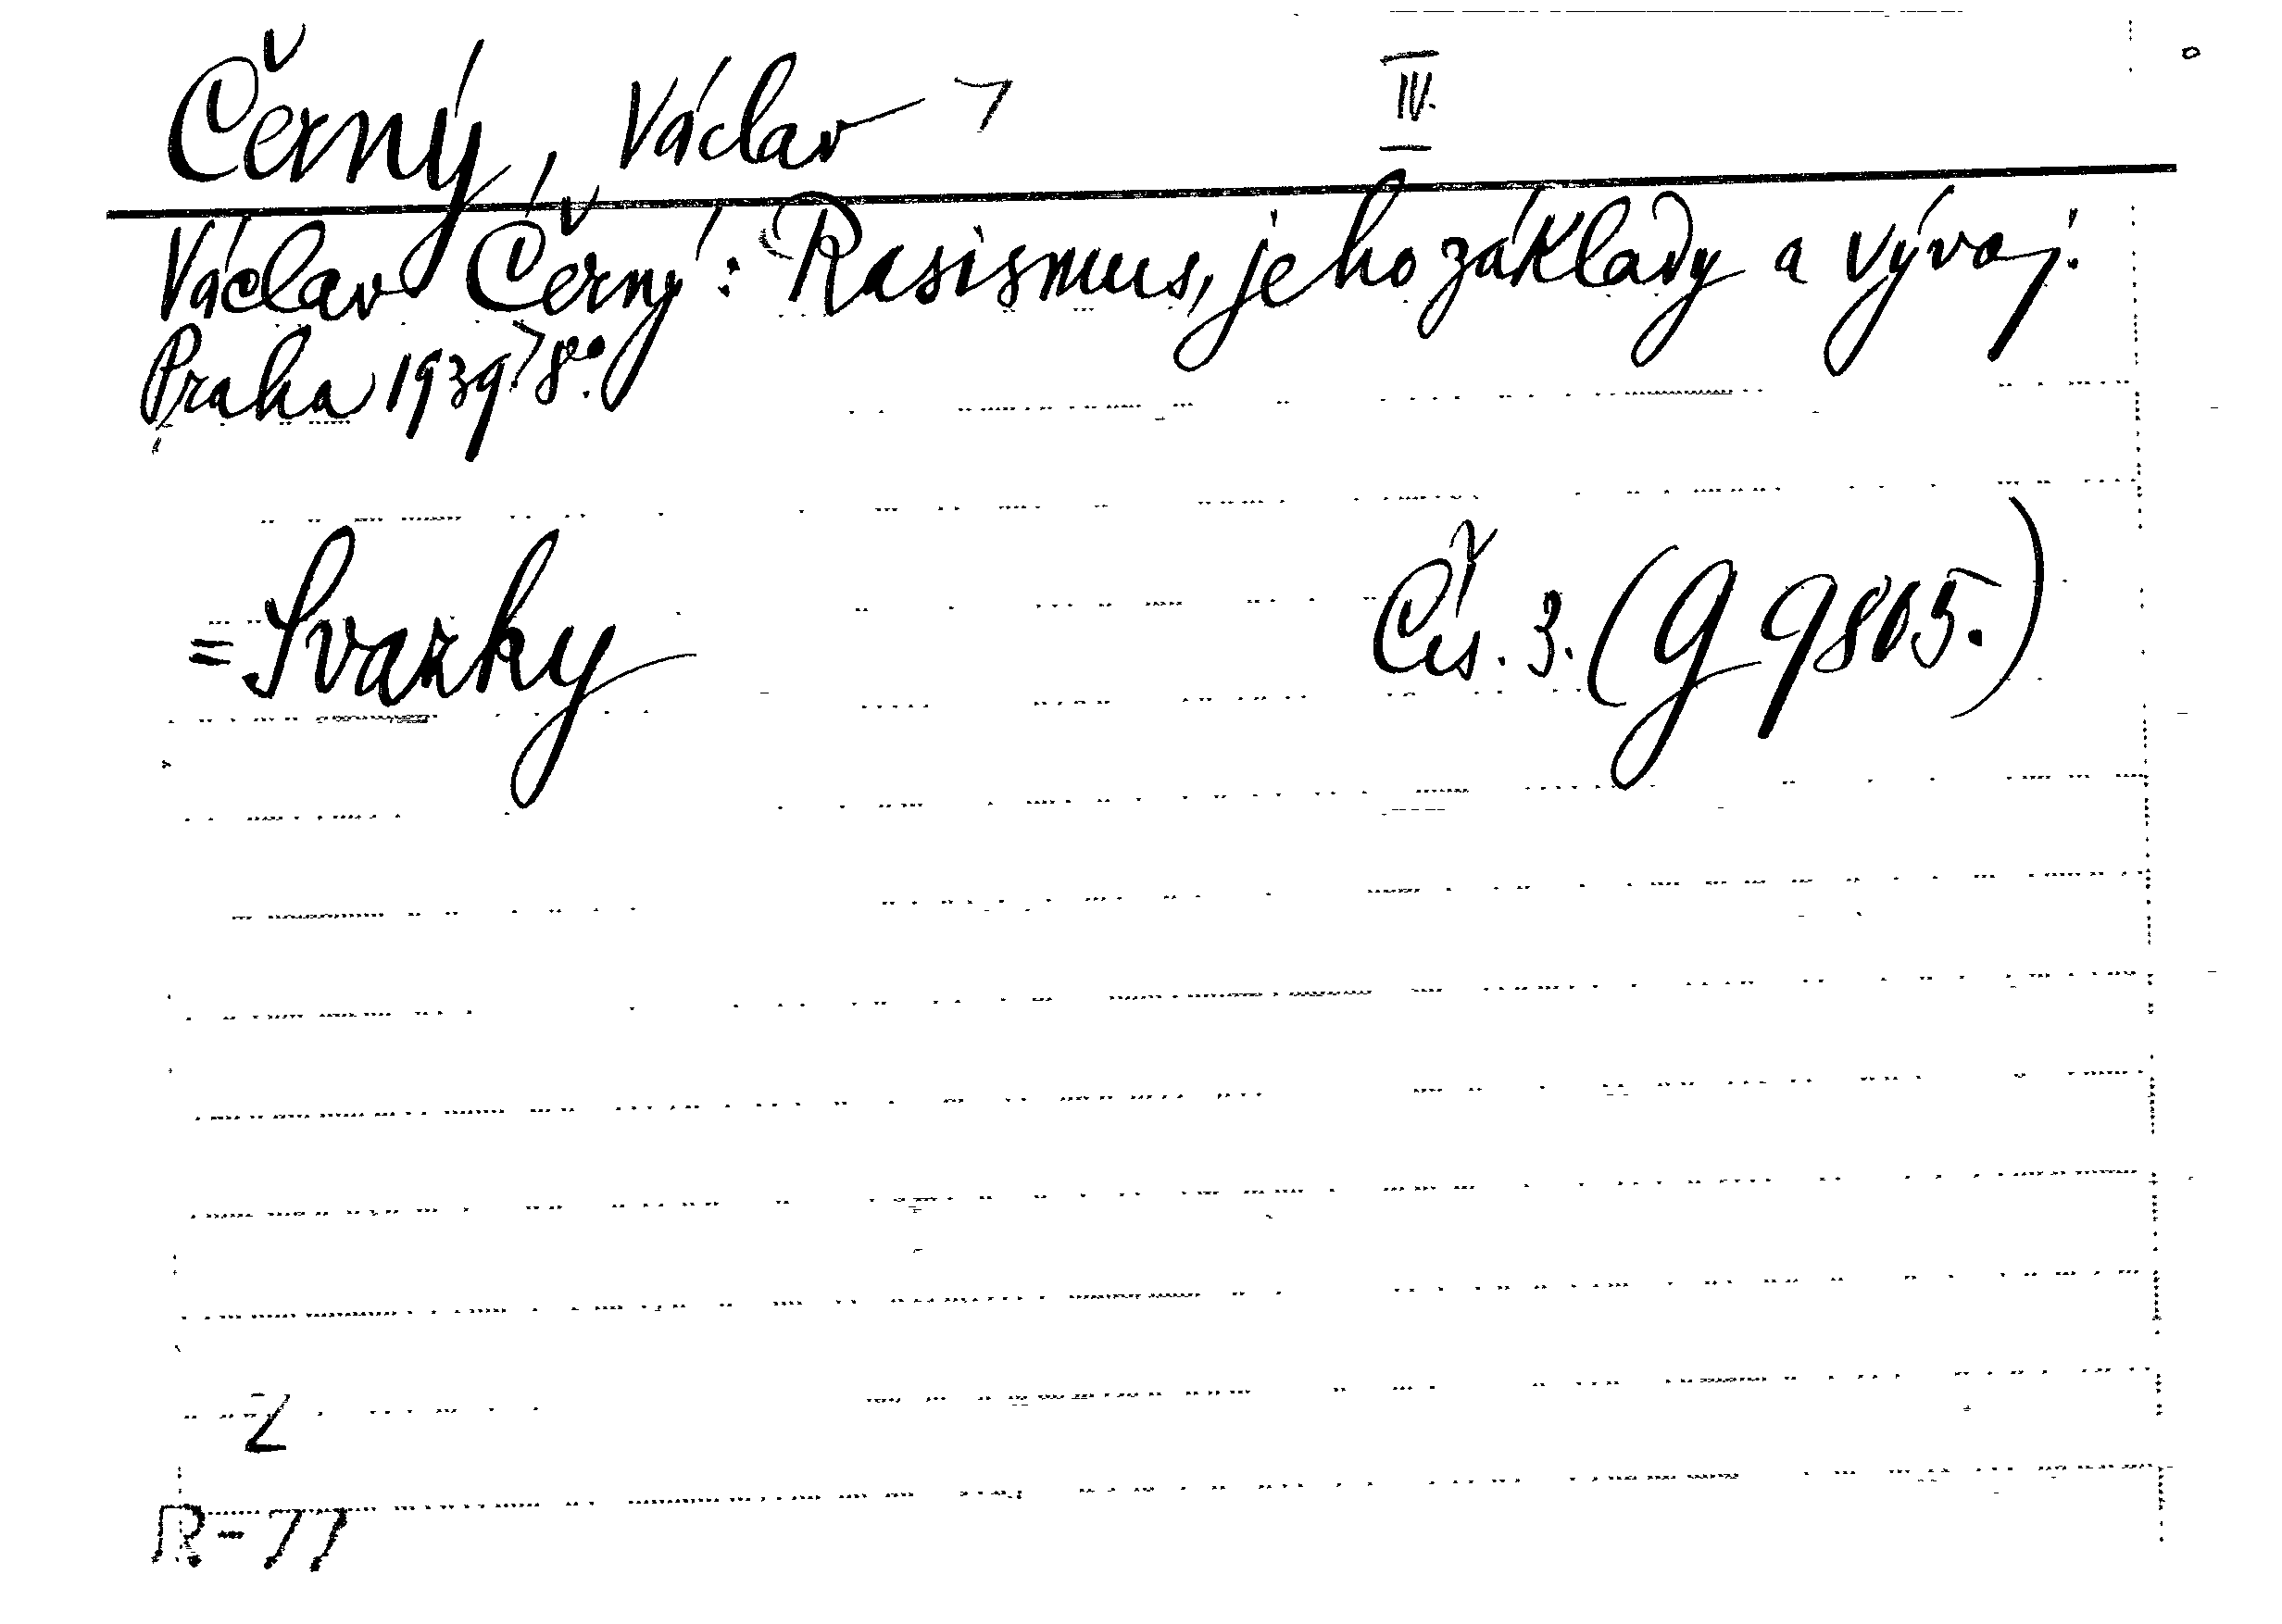 Černý, Václav IV.
Václav Černý: Rasismus, jeho základy a vývoj.
Praha 1939. 8°.
= Svazky Čís. 3. (G 9805.)
Z
R-77